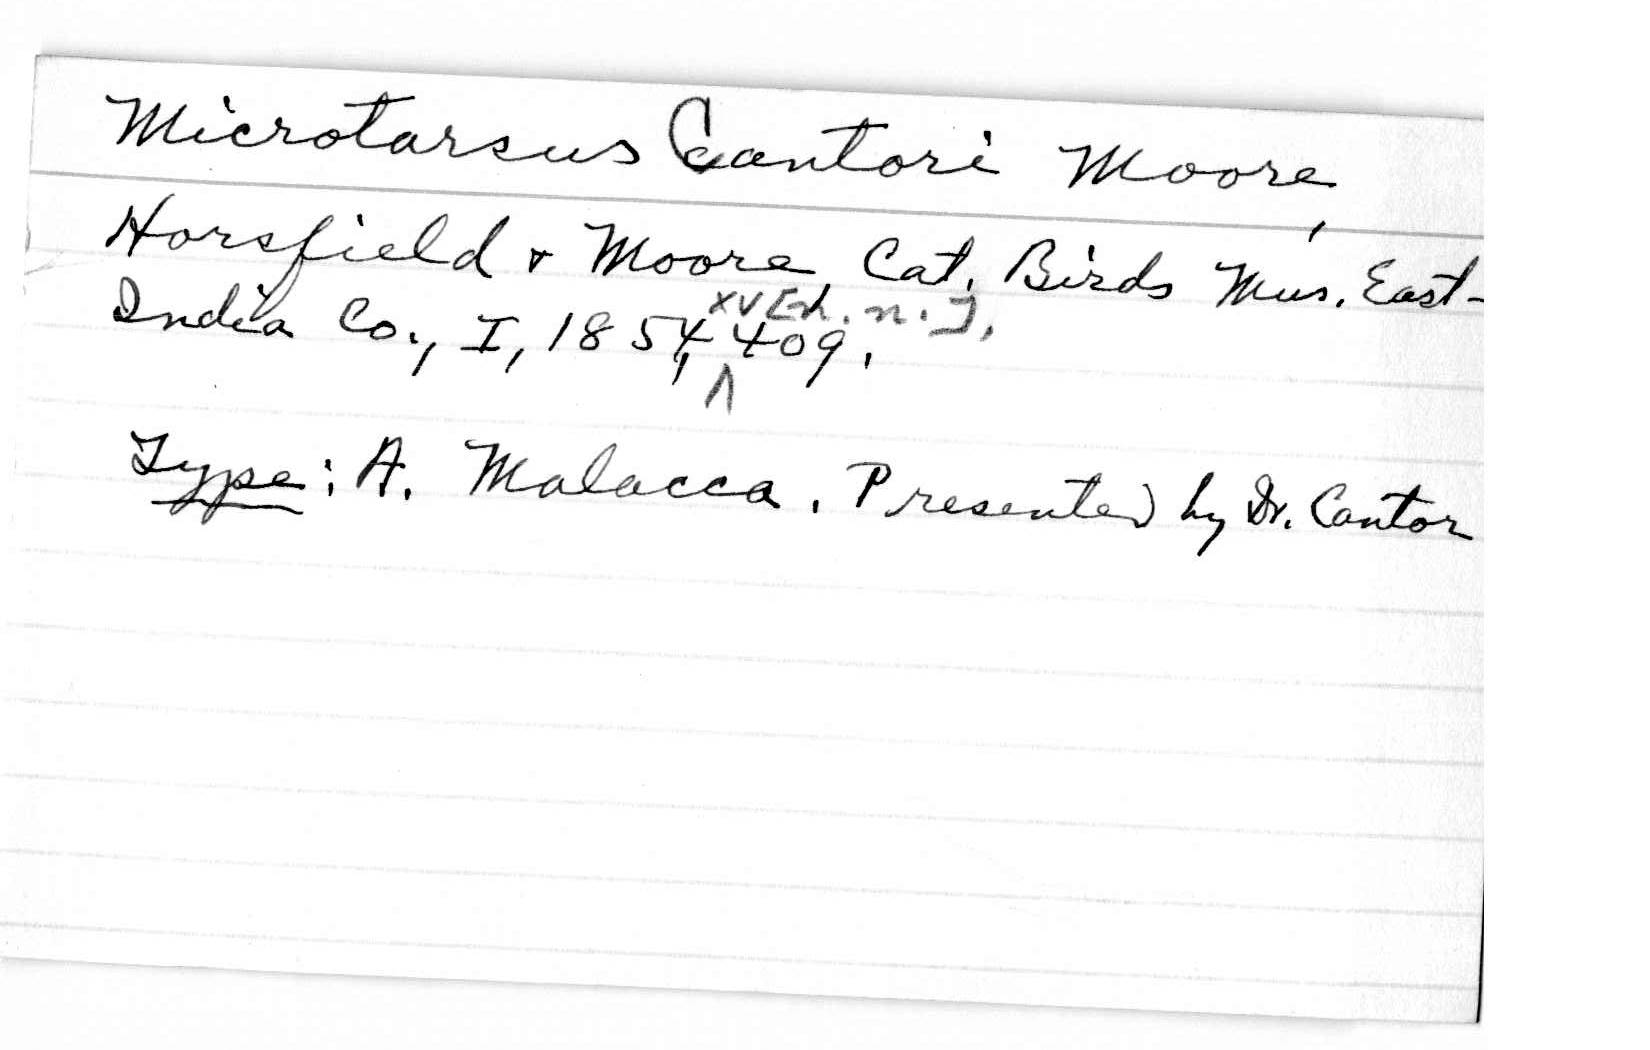 Microtarsus Cantori Moore,
Horsfield & Moore Cat. Birds Mus. East-
India Co., I, 1854, xv [h. n.], 409.
Type: A. Malacca. Presented by Dr. Cantor